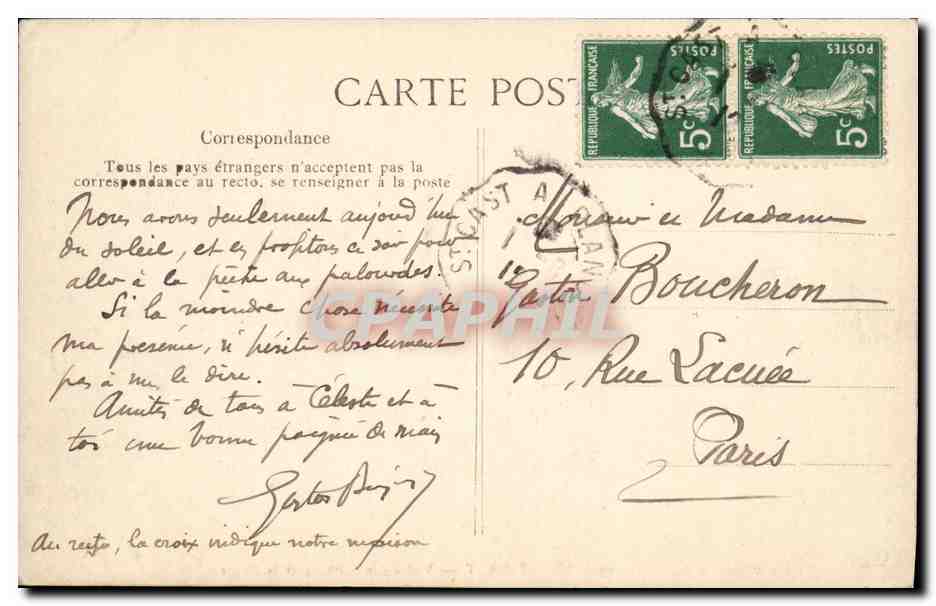 CARTE POST
Correspondance
Tous les pays étrangers n'acceptent pas la
correspondance au recto. se renseigner à la poste
Nous avons seulement aujourd'hui
du soleil, et en profitons ce soir pour
aller à la pêche aux palourdes.
Si la moindre chose nécessite
ma présence, n'hésite absolument
pas à me le dire.
Amitiés de tous à Céleste et à
toi une bonne poignée de main
Gaston
Au recto, la croix indique notre maison
REPUBLIQUE FRANÇAISE
POSTES
5c
REPUBLIQUE FRANÇAISE
POSTES
5c
ST. CAS
ST. CAST A LAN
Monsieur et Madame
Gaston Boucheron
10, Rue Lacuée
Paris
CPAPHIL